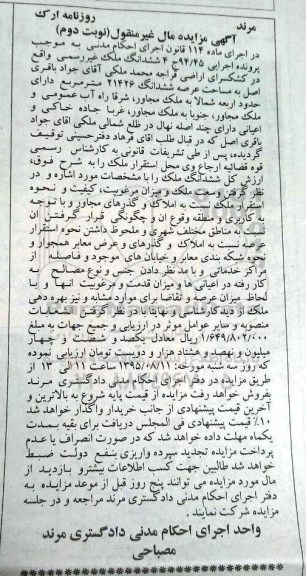 مرند
روزنامه ارک
آگهی مزایده مال غیرمنقول(نوبت دوم)
در اجرای ماده ۱۱۴ قانون اجرای احکام مدنی به موجب
پرونده اجرایی ۹۴/۴۵ج ۴ ششدانگ ملک غیررسمی واقع
در کشکسرای اراضی قراجه محمد ملکی آقای جواد باقری
اصل به مساحت عرصه ششدانگ ۲۱۴۲۶ مترمربع دارای
حدود اربعه شمالا به ملک مجاور، شرقا راه آب عمومی و
ملک مجاور، جنوبا به ملک مجاور، غربا جاده خاکی و
اعیانی دارای چند اصله نهال در ظله شمالی ملکی آقای جواد
باقری اصل که در قبال طلب آقای فرهاد دفترحسینی توقیف
گردیده، پس از طی تشریفات قانونی به کارشناس رسمی
قوه قضائیه ارجاع وی محل استقرار ملک را به شرح فوق،
ارزش کل ششدانگ ملک را با مشخصات مورد اشاره و در
نظر گرفتن وسعت ملک و میزان مرغوبیت، کیفیت و نحوه
استقرار ملک نسبت به املاک و گذرهای مجاور و با توجه
به کاربری و منطقه وقوع آن و چگونگی قرار گرفتن آن
نسبت به مناطق مختلف شهری و ملحوظ داشتن نحوه استقرار
عرصه نسبت به املاک و گذرهای و عرض معابر همجوار و
نحوه شبکه بندی معابر و خیابان های موجود و فاصله از
مراکز خدماتی و با مد نظر دادن جنس و نوع مصالح به
کار رفته در اعیانی ها و میزان قدمت و مرغوبیت آنها و با
لحاظ میزان عرصه و تقاضا برای موارد مشابه و نیز بهره دهی
ملک از دید کارشناسی و نهایتا با در نظر گرفتن انشعابات
منصوبه و سایر عوامل موثر در ارزیابی و جمیع جهات به مبلغ
۱/۶۴۹/۸۰۲/۰۰۰ ریال معادل یکصد و شصت و چهار
میلیون و نهصد و هشتاد هزار و دویست تومان ارزیابی نموده
که روز سه شنبه مورخه: ۱۳۹۵/۰۸/۱۱ ساعت ۱۱ الی ۱۳ از
طریق مزایده در دفتر اجرای احکام مدنی دادگستری مرند
بفروش خواهد رفت مزایده از قیمت پایه شروع به بالاترین و
آخرین قیمت پیشنهادی از جانب خریدار واگذار خواهد شد
۱۰٪ قیمت پیشنهادی فی المجلس دریافت برای بقیه بمدت
یکماه مهلت داده خواهد شد که در صورت انصراف یا عدم
پرداخت مزایده تجدید سپرده واریزی بنفع دولت ضبط
خواهد شد طالبین جهت کسب اطلاعات بیشتر و بازدید از
مال مورد مزایده می توانند پنج روز قبل از موعد مزایده به
دفتر اجرای احکام مدنی دادگستری مرند مراجعه و در جلسه
مزایده شرکت نمایند .
واحد اجرای احکام مدنی دادگستری مرند
مصباحی